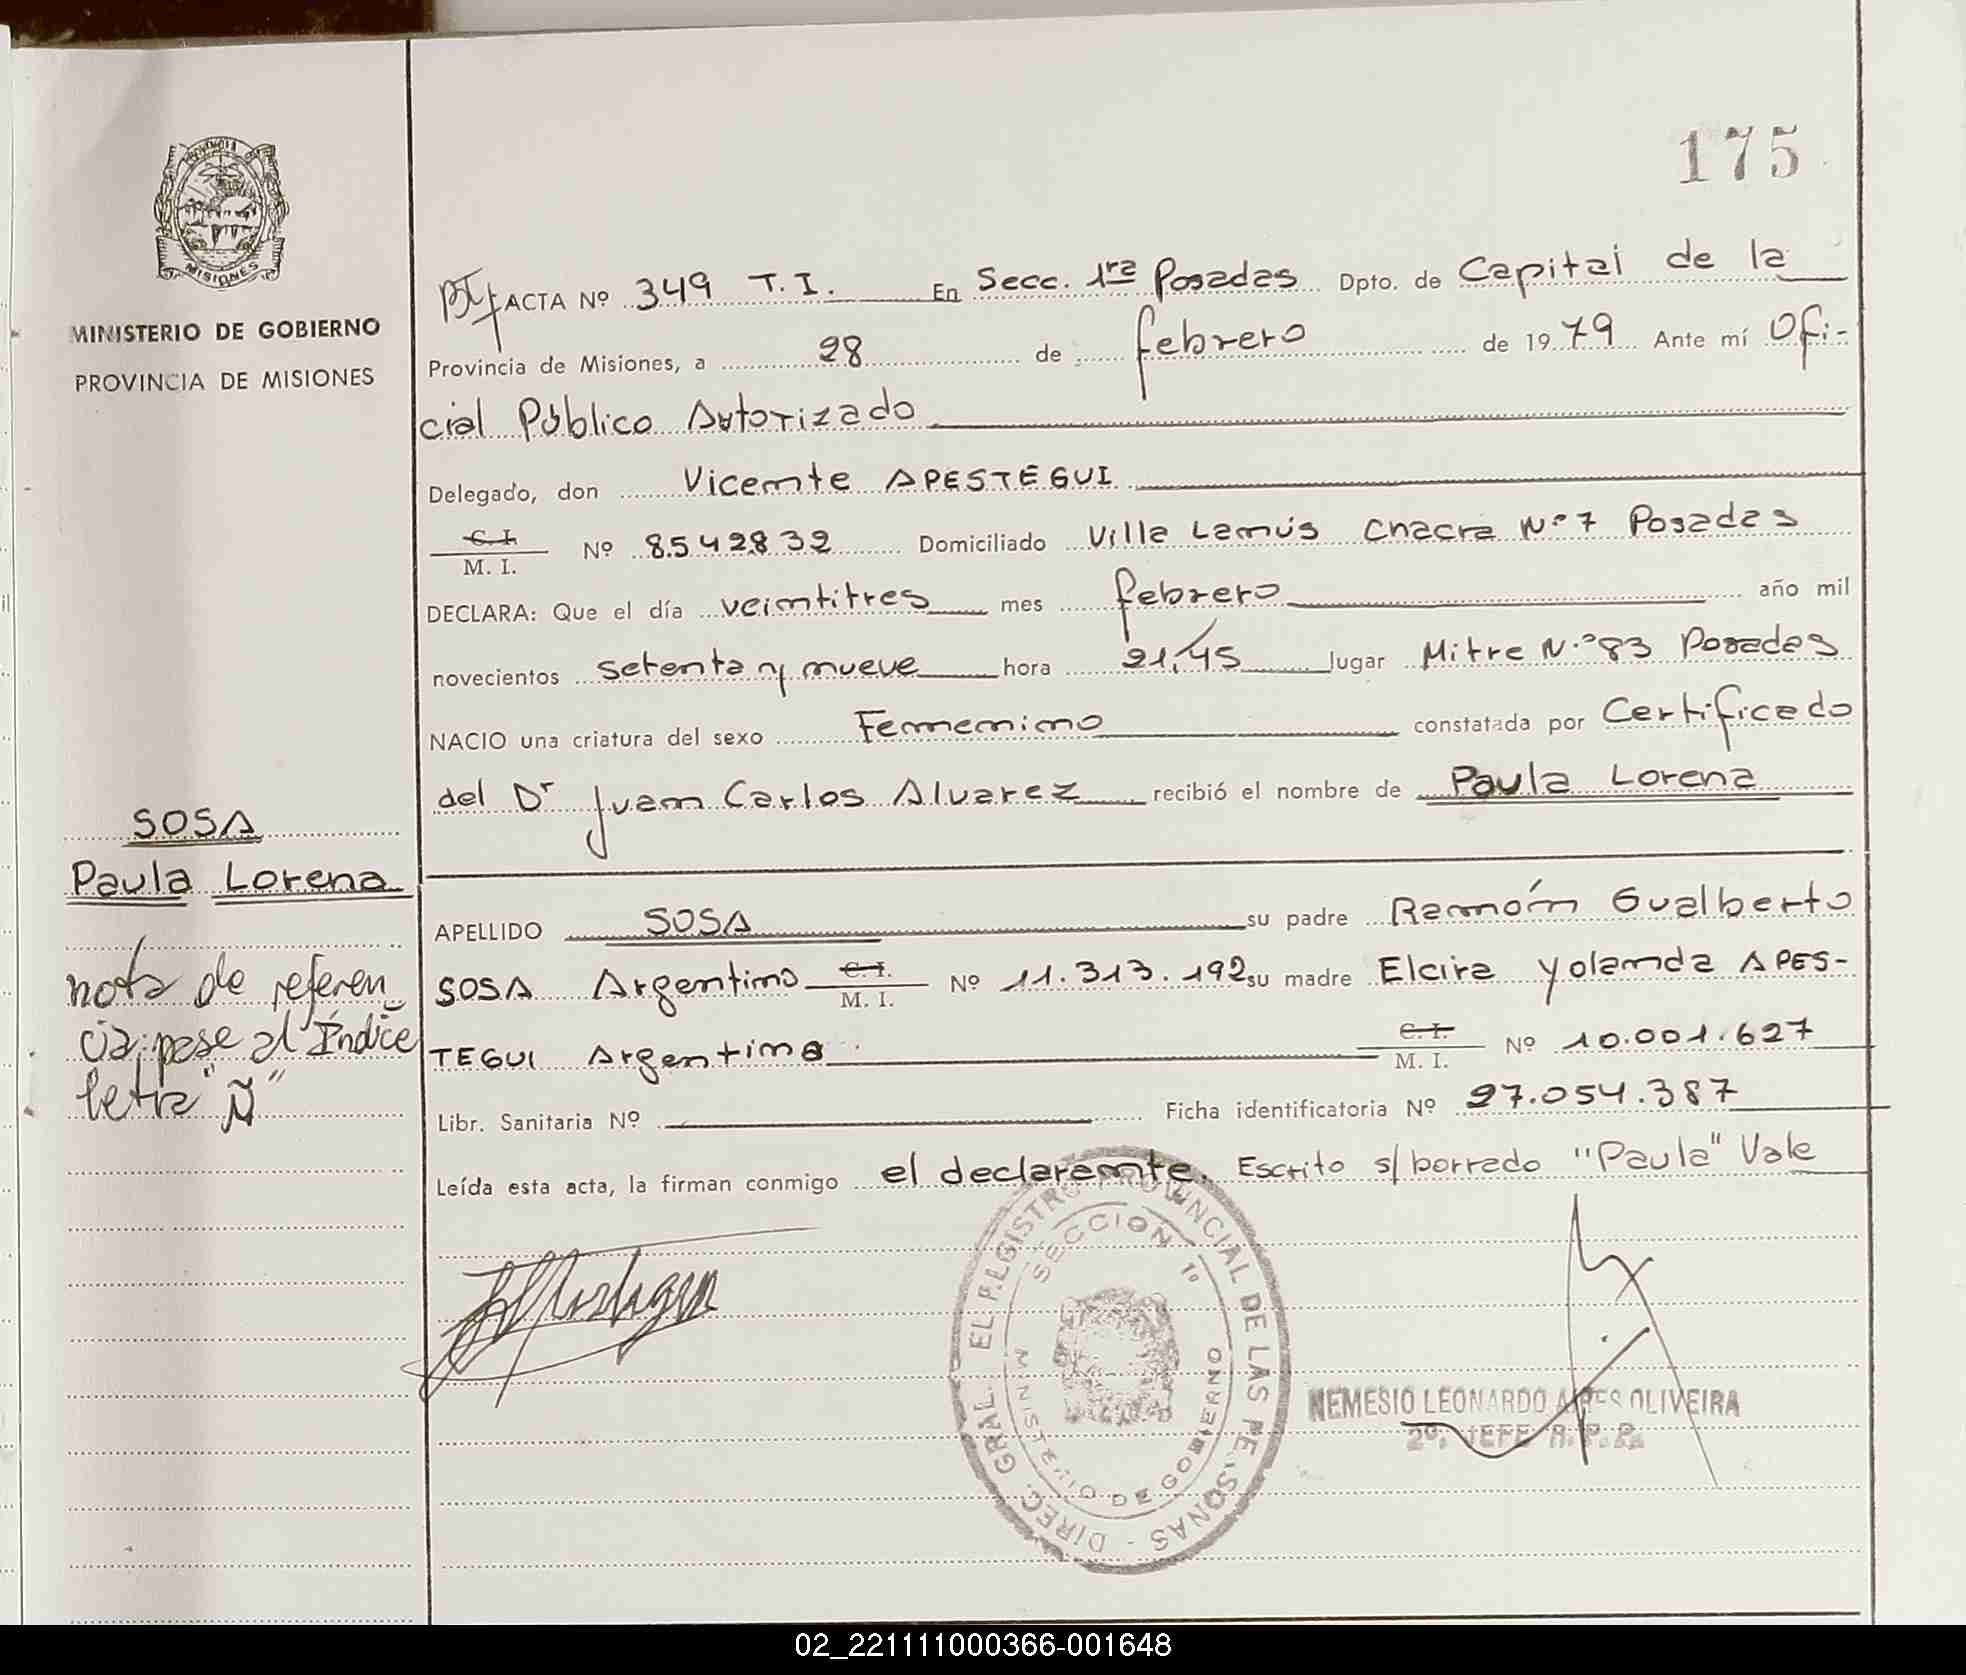 175
MISIONES
MINISTERIO DE GOBIERNO
PROVINCIA DE MISIONES
SOSA
Paula Lorena
nota de referen
cia: pase al Índice
letra "Ñ"
ACTA Nº 349 T.I. En Secc. 1ra Posadas Dpto. de Capital de la
Provincia de Misiones, a 28 de febrero de 1979 Ante mí Ofi-
cial Público Autorizado
Delegado, don Vicente APESTEGUI
C. I.
M. I. Nº 8542832 Domiciliado Villa Lanús Chacra Nº 7 Posadas
DECLARA: Que el día veintitres mes febrero año mil
novecientos setenta y nueve hora 21,45 lugar Mitre N.º 83 Posadas
NACIO una criatura del sexo Femenino constatada por Certificado
del Dr Juan Carlos Alvarez recibió el nombre de Paula Lorena
APELLIDO SOSA su padre Ramón Gualberto
SOSA Argentino C. I. M. I. Nº 11.313.192 su madre Elcira Yolanda APES-
TEGUI Argentina C. I. M. I. Nº 10.001.627
Libr. Sanitaria Nº Ficha identificatoria Nº 27.054.387
Leída esta acta, la firman conmigo el declarante. Escrito s/borrado "Paula" Vale
DIREC. GRAL. EL REGISTRO PROVINCIAL DE LAS PERSONAS
SECCION 1º
MINISTERIO DE GOBIERNO
NEMESIO LEONARDO AIRES OLIVEIRA
2º. JEFE R.P.P.
02_221111000366-001648